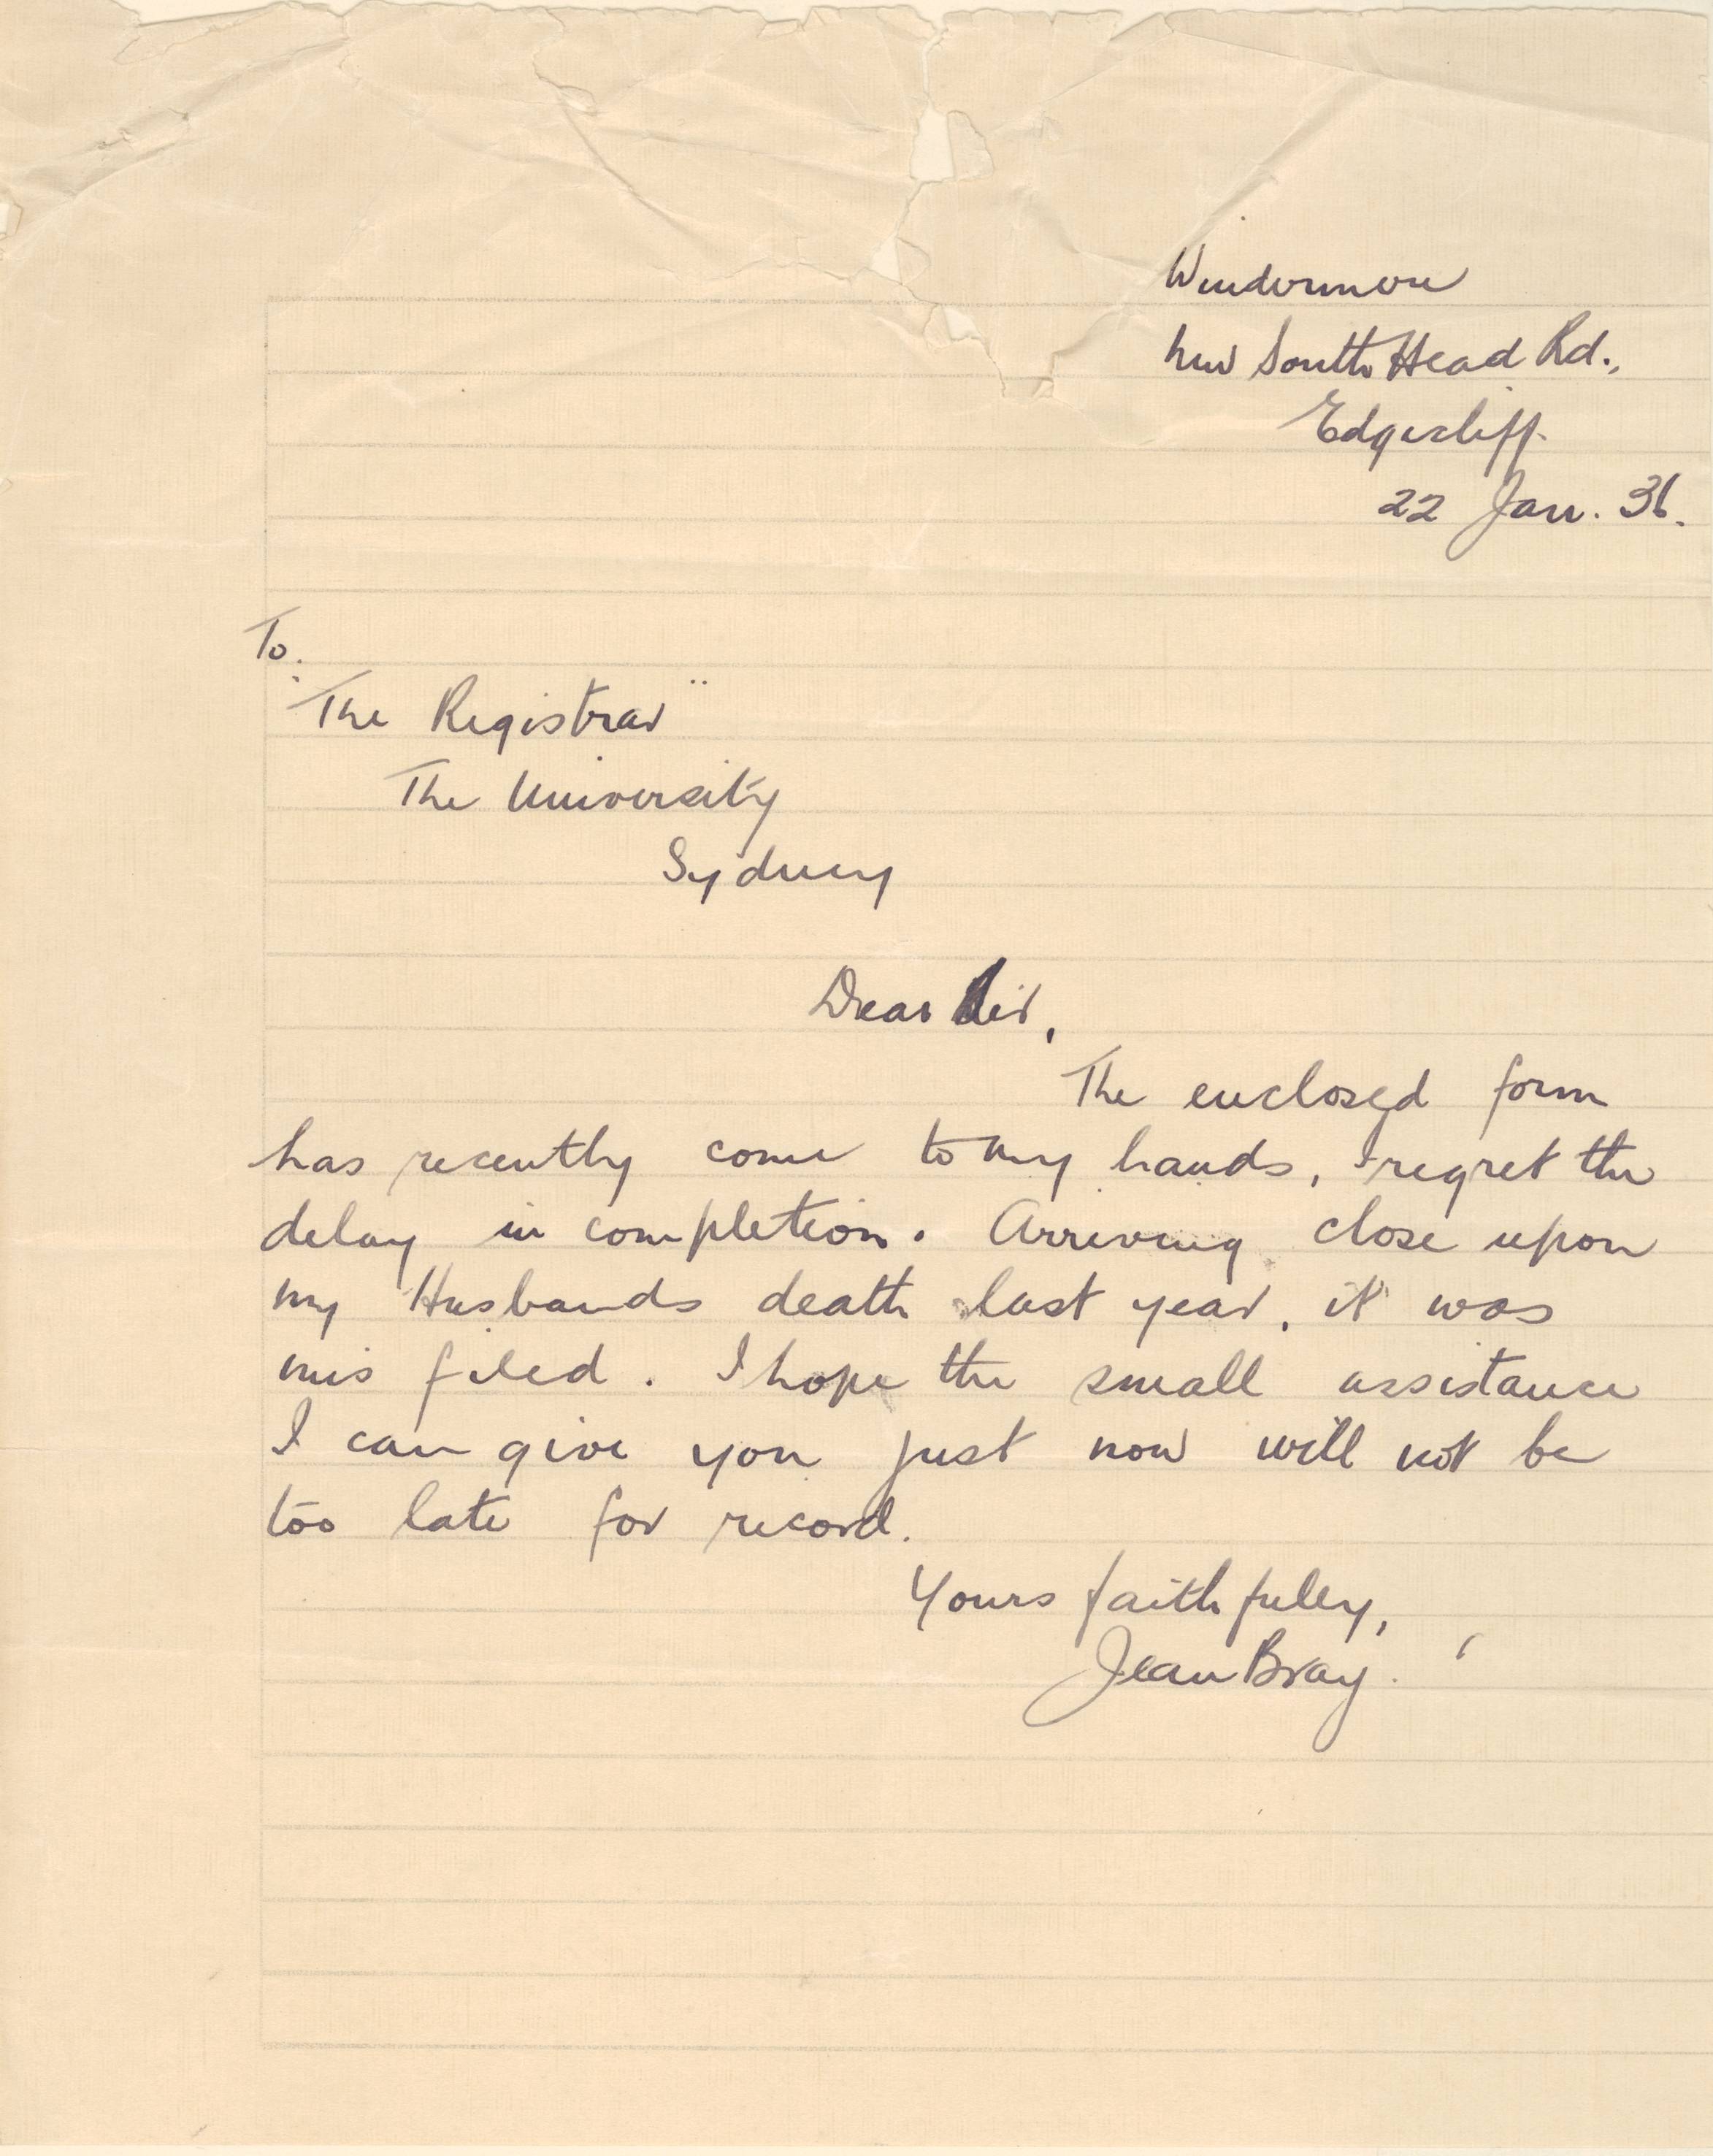 Windermere
New South Head Rd.,
Edgecliff.
22 Jan. 36.
To.
"The Registrar"
The University
Sydney
Dear Sir,
The enclosed form
has recently come to my hands, I regret the
delay in completion. Arriving close upon
my Husbands death last year, it was
mis filed. I hope the small assistance
I can give you just now will not be
too late for record.
Yours faithfully,
Jean Bray.